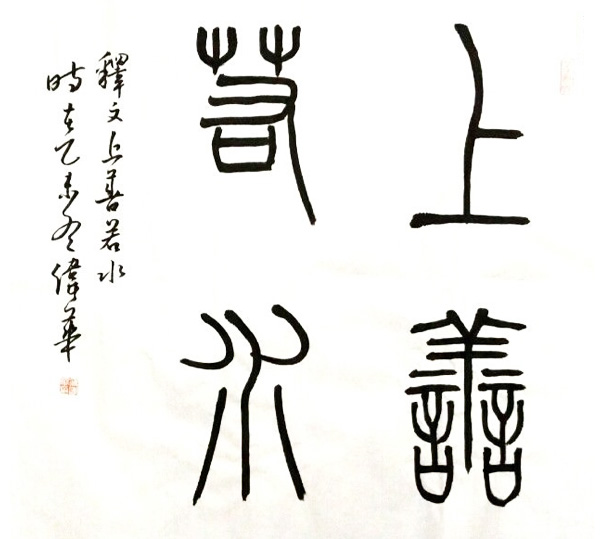 上善
若水
釋文上善若水
時在乙未冬偉華